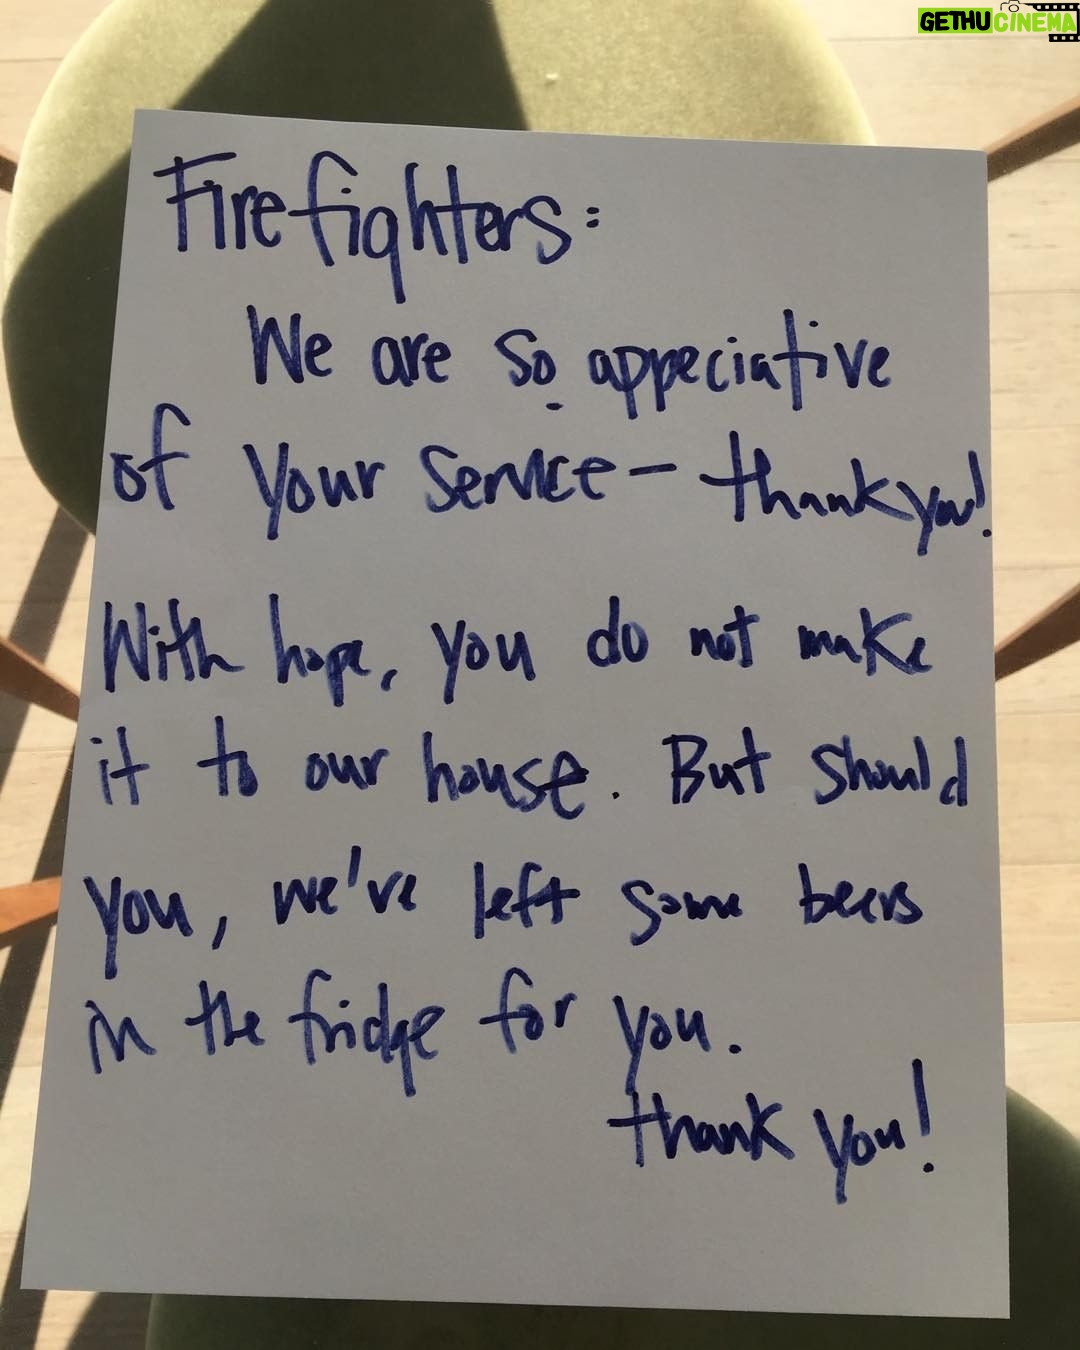 GETHUCINEMA
Firefighters:
We are so appreciative
of your service - thank you!
With hope, you do not make
it to our house. But should
you, we've left some beers
in the fridge for you.
thank you!